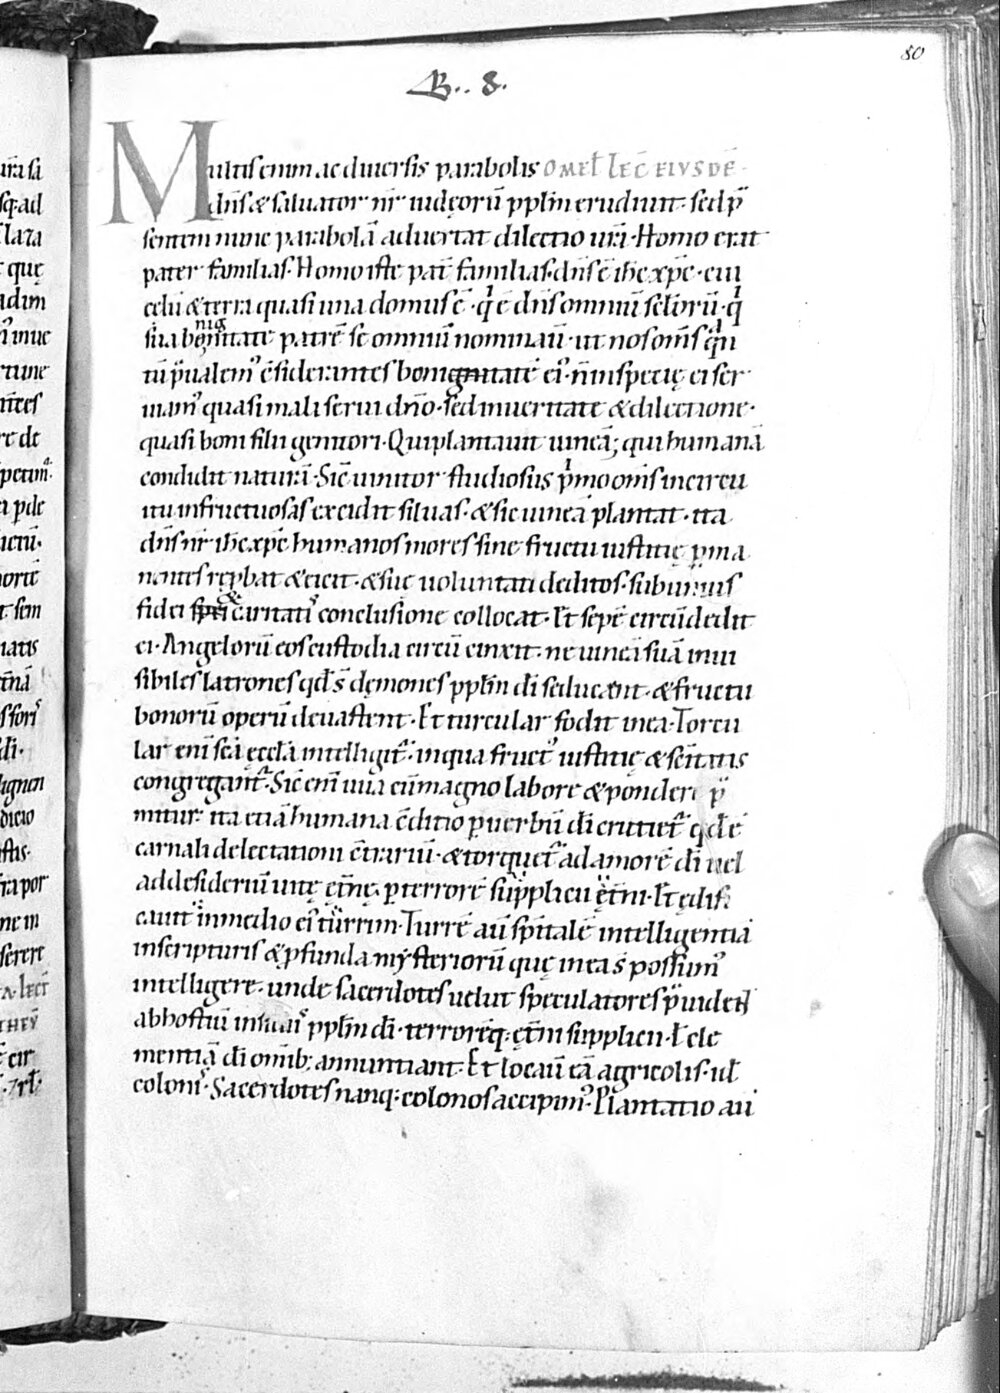 80
B.. 8.
Multis enim ac diuersis parabolis OMEL̄ LEC̄ EIVSDĒ.
dn̄s & saluator nr̄ iudęorū pplm̄ erudiuit. sed p̄
sentem nunc parabolā aduertat dilectio ur̄i. Homo erat
pater familias. Homo iste pat̄ familias. dn̄s ē ih̄c xp̄c. cui
celū & terra quasi una domus ē. q̄ ē dn̄s omniū seclorū. q̄
sua bonitate patrē se omniū nominauit. ut nos om̄s
quasi mali serui dn̄o. sed in ueritate & dilectione.
quasi boni filii genitori. Qui plantauit uineā; qui humanā
condidit naturā. Sic̄ uinitor studiosus p̄mo om̄s in circu
itu infructuosas excidit siluas. & sic uineā plantat. ita
dn̄s nr̄ ih̄c xp̄c humanos mores sine fructu iustitię p̄ma
nentes & eicit. & suę uoluntati deditos. sub unius
fidei & caritatis conclusione collocat. Et sepē circūdedit
ei. Angelorū eos custodia circū cinxit. ne uineā suā inui
sibiles latrones qd̄ s̄ dęmones pplm̄ dī seducant. & fructū
bonorū operū deuastent. Et turcular fodit in ea. Torcu
lar enī scā ęccl̄a intelligit̄. in qua fruct᾿ iustitię & scītatis
congregant̄. Sic̄ enī uua cū magno labore & pondere p̄
mitur. ita etiā humana c̄ditio p̄ uerbū dī eruitet̄ qd̄ ē
carnali delectationi c̄trariū. & torquet̄ ad amorē dī uel
ad desideriū uitę ęt̄nę. p̄ terrorē supplicii ęt̄ni. Et ędifi
cauit in medio ei᾿ turrim. Turrē au᷑ sp̄italē intelligentiā
in scripturis & p̄funda mysteriorū quę in ea s̄ possum᾿
intelligere. unde sacerdotes uelut speculatores p̄uident
ab hostiū insidiis pplm̄ dī. terrorēq; ęt̄ni supplicii. l̄ cle
mentiā dī omnib; annuntiant. Et locauit eā agricolis. ul̄
colonis. Sacerdotes nanq; colonos accipim᾿. Plantatio au᷑